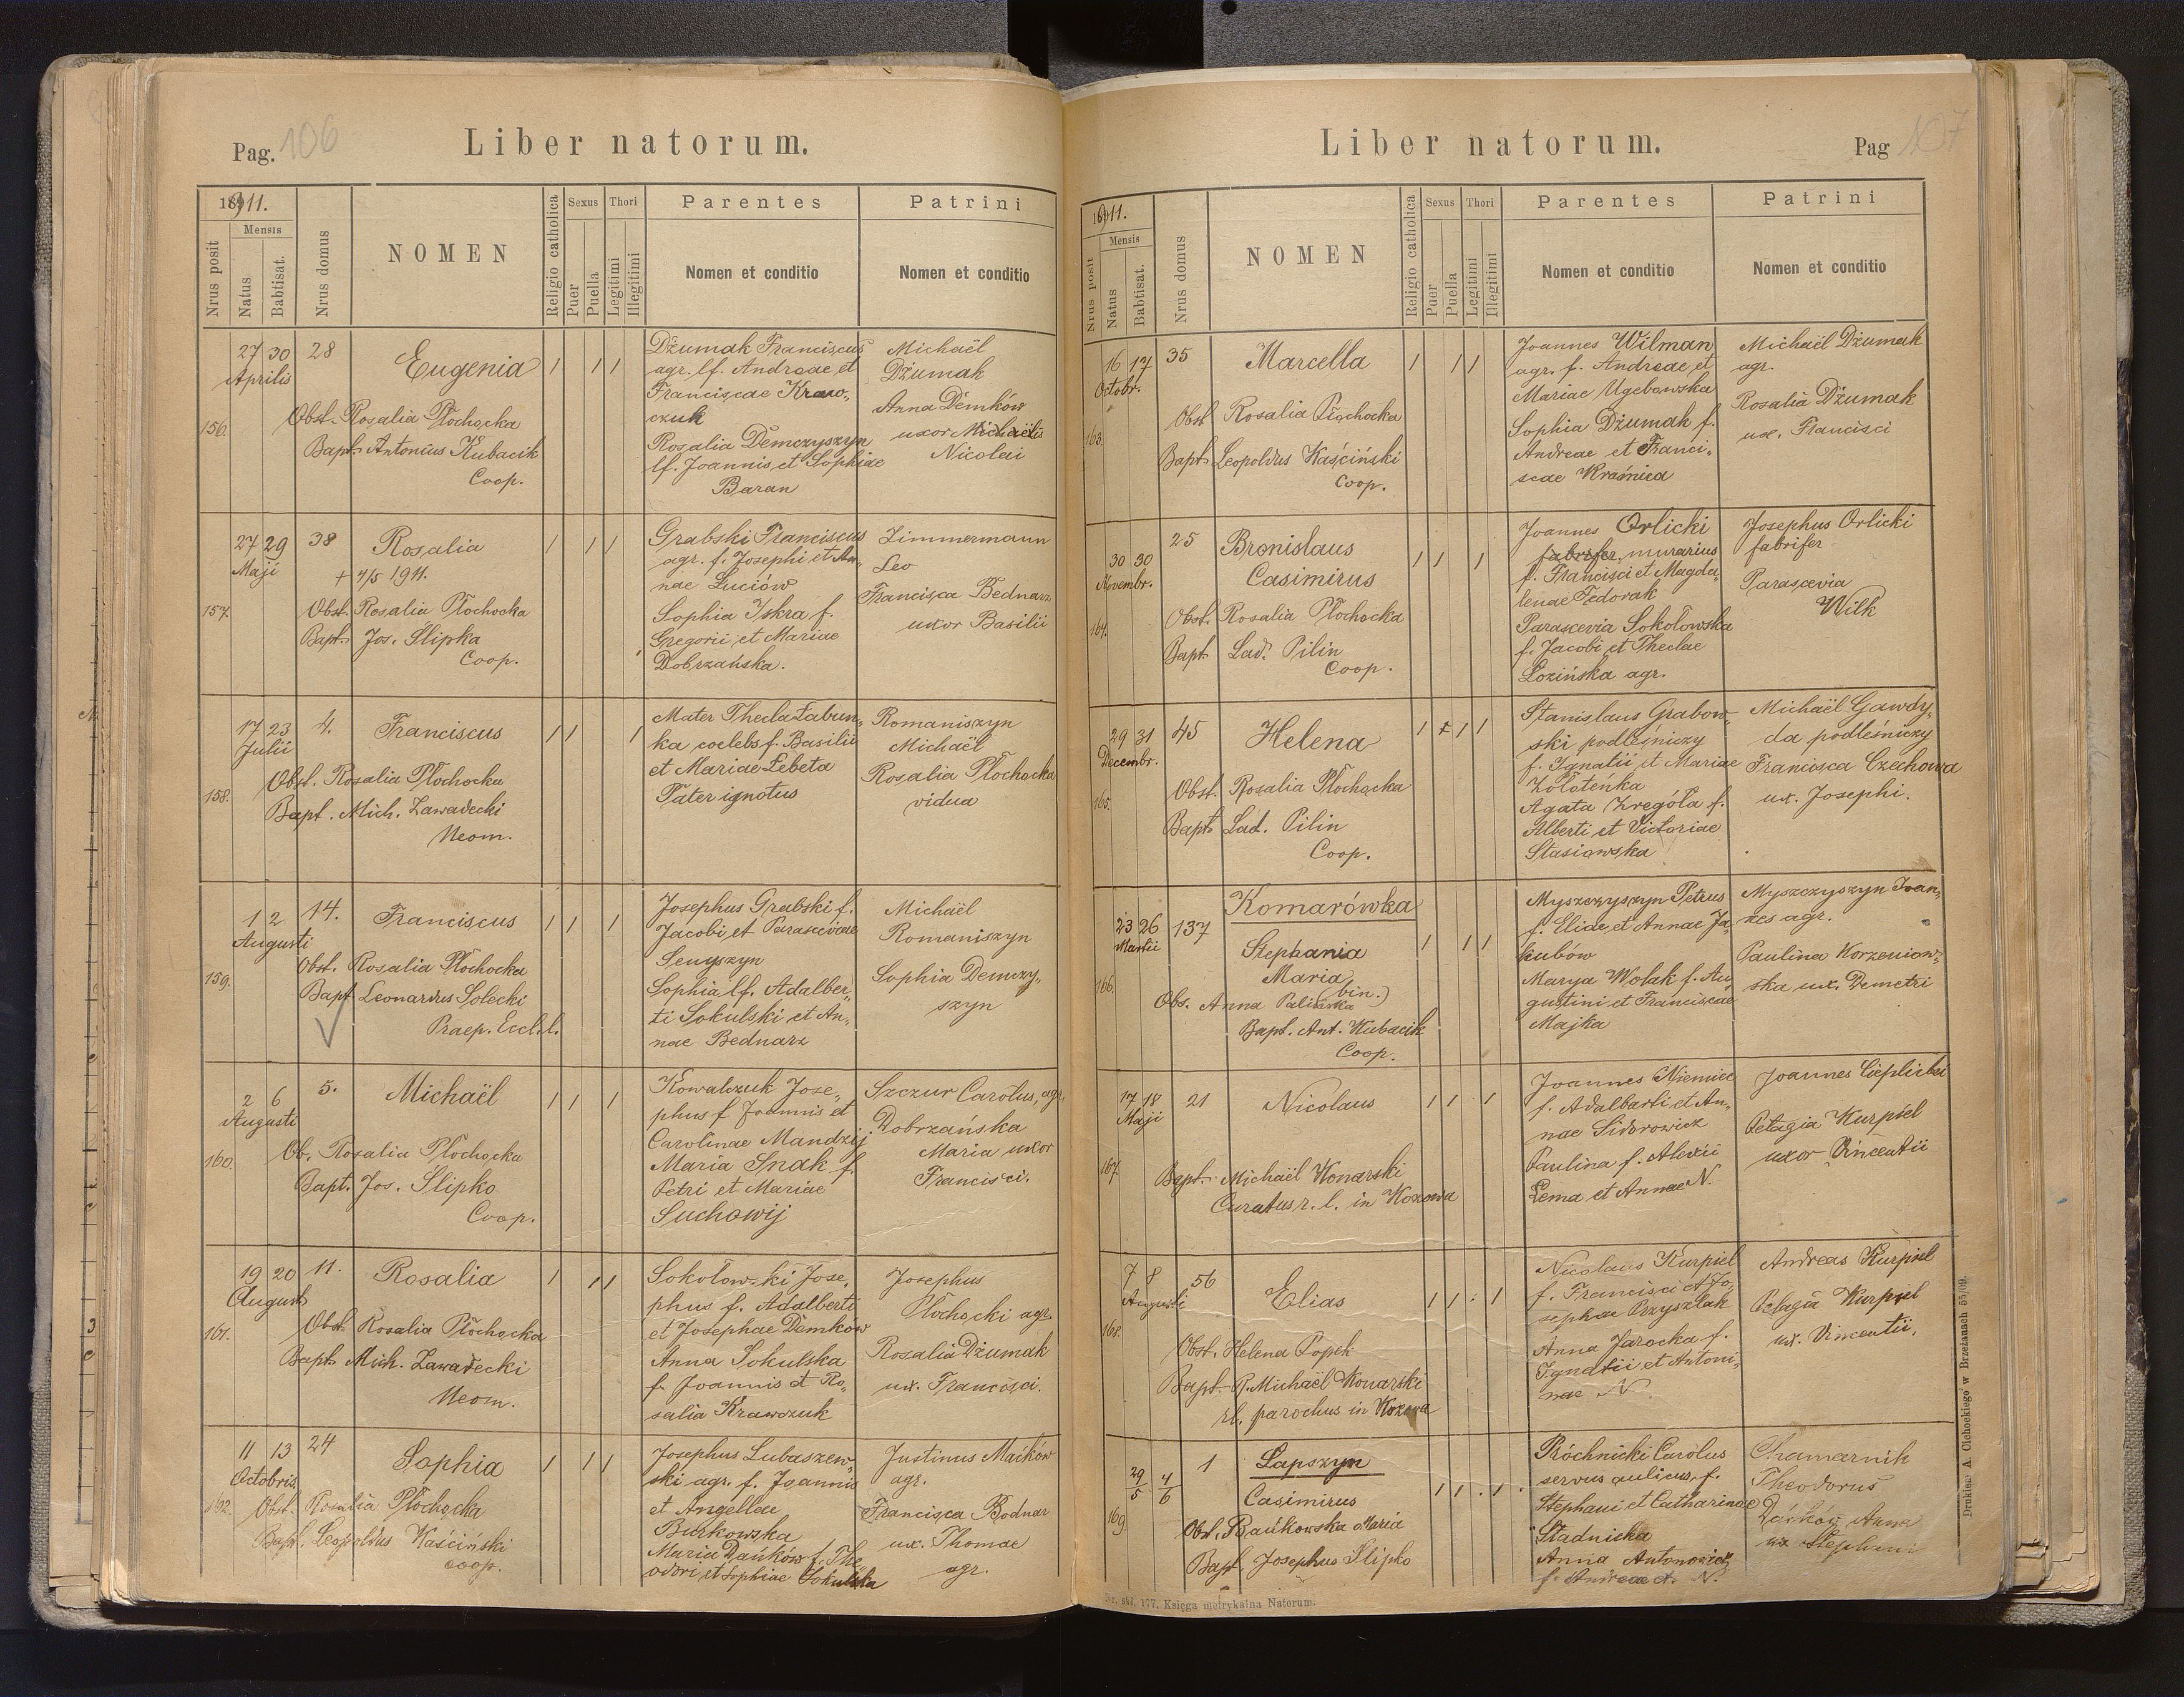 Pag. 106
Liber natorum.
1911.
Nrus posit
Mensis
Natus
Babtisat.
Nrus domus
NOMEN
Religio catholica
Sexus
Puer
Puella
Thori
Legitimi
Illegitimi
Parentes
Nomen et conditio
Patrini
Nomen et conditio
156.
27 30
Aprilis
28
Eugenia
Obst. Rosalia Płochocka
Bapt. Antonius Kubacik
Coop.
Dżumak Franciscus
agr. lf. Andreae et
Franciscae Kraw-
czuk
Rosalia Demczyszyn
lf. Joannis et Sophiae
Baran
Michaël
Dżumak
Anna Demków
uxor Michaëlis
Nicolai
157.
27 29
Maji
38
Rosalia
+ 4/5 1911.
Obst. Rosalia Płochocka
Bapt. Jos. Slipka
Coop.
Grabski Franciscus
agr. f. Josephi et An-
nae Łuciów
Sophia Iskra f.
Gregorii et Mariae
Dobrzańska.
Zimmermann
Leo
Francisca Bednarz
uxor Basilii
158.
17 23
Julii
4.
Franciscus
Obst. Rosalia Płochocka
Bapt. Mich. Zawadecki
Neom.
Mater Thecla Łabun-
ka coelebs f. Basilii
et Mariae Łebeta
Pater ignotus
Romaniszyn
Michaël
Rosalia Płochocka
vidua
159.
1 2
Augusti
14.
Franciscus
Obst. Rosalia Płochocka
Bapt. Leonardus Solecki
Praep. Eccl. l.
Josephus Grabski f.
Jacobi et Parasceviae
Senyszyn
Sophia lf. Adalber-
ti Sokulski et An-
nae Bednarz
Michaël
Romaniszyn
Sophia Demczy-
szyn
160.
2 6
Augusti
5.
Michaël
Ob. Rosalia Płochocka
Bapt. Jos. Slipko
Coop.
Kowalczuk Jose-
phus f. Joannis et
Carolinae Mandzij
Maria Snak f.
Petri et Mariae
Suchowij
Szczur Carolus, agr.
Dobrzańska
Maria uxor
Francisci.
161.
19 20
August
11.
Rosalia
Obst. Rosalia Płochocka
Bapt. Mich. Zawadecki
Neom.
Sokołowski Jose-
phus f. Adalberti
et Josephae Demków
Anna Sokulska
f. Joannis et Ro-
salia Krawczuk
Josephus
Płochocki agr.
Rosalia Dżumak
ux. Francisci.
162.
11 13
Octobris
24
Sophia
Obst. Rosalia Płochocka
Bapt. Leopoldus Kaściński
coop.
Josephus Lubaszew-
ski agr. f. Joannis
et Angellae
Burkowska
Maria Dańków f. The-
odori et Sophiae Sokulska
Justinus Maćków
agr.
Francisca Bodnar
ux. Thomae
agr.
Liber natorum.
Pag 107
1911.
Nrus posit
Mensis
Natus
Babtisat.
Nrus domus
NOMEN
Religio catholica
Sexus
Puer
Puella
Thori
Legitimi
Illegitimi
Parentes
Nomen et conditio
Patrini
Nomen et conditio
163.
16 17
Octobr.
35
Marcella
Obst. Rosalia Płochocka
Bapt. Leopoldus Kaściński
Coop.
Joannes Wilman
agr. f. Andreae et
Mariae Ugebowska
Sophia Dżumak f.
Andreae et Franci-
scae Kraśnica
Michaël Dżumak
agr.
Rosalia Dżumak
ux. Francisci
164.
30 30
Novembr.
25
Bronislaus
Casimirus
Obst. Rosalia Płochocka
Bapt. Lad. Pilin
Coop.
Joannes Orlicki
fabrifer murarius
f. Francisci et Magda-
lenae Fedorak
Parascevia Sokołowska
f. Jacobi et Theclae
Łozińska agr.
Josephus Orlicki
fabrifer
Parascevia
Wilk
165.
29 31
Decembr.
45
Helena
Obst. Rosalia Płochocka
Bapt. Lad. Pilin
Coop.
Stanislaus Grabow-
ski podleśniczy
f. Ignatii et Mariae
Zołoteńka
Agata Zregóła f.
Alberti et Victoriae
Stasiowska
Michaël Gawdy-
da podleśniczy
Francisca Czechowa
ux. Josephi.
166.
23 26
Martii
137
Komarówka
Stephania
Maria
(bin.)
Obs. Anna Palińska
Bapt. Ant. Kubacik
Coop.
Myszczyszyn Petrus
f. Eliae et Annae Ja-
kubów
Marya Wolak f. Au-
gustini et Franciscae
Majka
Myszczyszyn Joan-
nes agr.
Paulina Korzeniow-
ska ux. Demetri
167.
17 18
Maji
21
Nicolaus
Bapt. Michaël Konarski
Curatus r. l. in Kozowa
Joannes Niemiec
f. Adalberti et An-
nae Sidorowicz
Paulina f. Alexii
Lema et Annae N.
Joannes Cieplicki
Pelagia Kurpiel
uxor Vincentii
168.
7 8
Augusti
56
Elias
Obst. Helena Popek
Bapt. P. Michaël Konarski
rl. parochus in Kozowa
Nicolaus Kurpiel
f. Francisci et Jo-
sephae Przyszlak
Anna Jarocka f.
Ignatii et Antoni-
nae N.
Andreas Kurpiel
Pelagia Kurpiel
ux. Vincentii.
169.
29/5 4/6
1
Łapszyn
Casimirus
Obst. Bańkowska Maria
Bapt. Josephus Slipko
Próchnicki Carolus
servus aulicus, f.
Stephani et Catharinae
Stadnicka
Anna Antonowicz
f. Andreae et N.
Chamarnik
Theodorus
Dáńków Anna
ux Stephani
Drukiem A. Cichockiego w Brzeżanach 55/09.
Nr. skł. 177. Księga metrykalna Natorum.